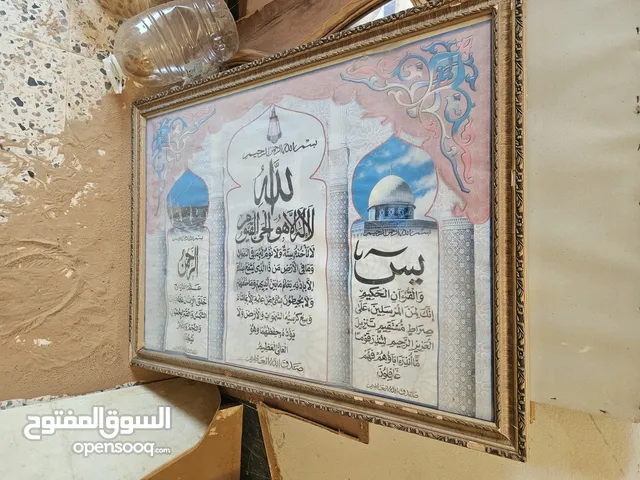 بسم الله الرحمن الرحيم
الله
لا إله إلا هو الحي القيوم
لا تأخذه سنة ولا نوم له ما في السموات
وما في الأرض من ذا الذي يشفع عنده
إلا بإذنه يعلم ما بين أيديهم وما خلفهم
ولا يحيطون بشيء من علمه إلا بما شاء
وسع كرسيه السموات والأرض ولا
يؤده حفظهما وهو
العلي العظيم
صدق الله العظيم
بسم الله الرحمن الرحيم
يس
والقرآن الحكيم
إنك لمن المرسلين على
صراط مستقيم تنزيل
العزيز الرحيم لتنذر قوما
ما أنذر آباؤهم فهم
غافلون
صدق الله العظيم
بسم الله الرحمن الرحيم
الرحمن
السوق المفتوح
opensooq.com